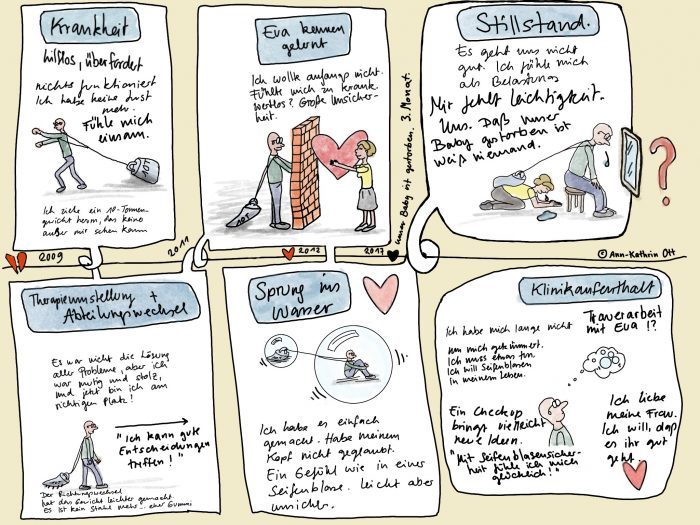 Krankheit
hilflos, überfordert
nichts funktioniert
Ich habe keine Lust
mehr.
Fühle mich
einsam.
10T
Ich ziehe ein 10-Tonnen-
gewicht herum, das keiner
außer mir sehen kann
Eva kennen
gelernt
Ich wollte anfangs nicht.
Fühlte mich zu krank.
wertlos? Große Unsicher-
heit.
10T
Stillstand.
Es geht uns nicht
gut. Ich fühle mich
als Belastung
Mir fehlt Leichtigkeit.
Uns. Daß unser
Baby gestorben ist
weiß niemand.
?
2009
2011
2012
2017
unser Baby ist gestorben. 3. Monat.
© Ann-Kathrin Ott
Therapieumstellung +
Abteilungswechsel
Es war nicht die Lösung
aller Probleme, aber ich
war mutig und stolz,
und jetzt bin ich am
richtigen Platz!
"Ich kann gute
Entscheidungen
treffen!"
Der Richtungswechsel
hat das Gewicht leichter gemacht.
Es ist kein Stahl mehr... eher Gummi
Sprung ins
Wasser
Ich habe es einfach
gemacht. Habe meinem
Kopf nicht geglaubt.
Ein Gefühl wie in einer
Seifenblase. Leicht aber
unsicher.
Klinikaufenthalt
Ich habe mich lange nicht
um mich gekümmert.
Ich muss etwas tun.
Ich will Seifenblasen
in meinem Leben.
Trauerarbeit
mit Eva!?
Ein Checkup
bringt vielleicht
neue Ideen.
"Mit Seifenblasensicher-
heit fühle ich mich
glücklich!"
Ich liebe
meine Frau.
Ich will, daß
es ihr gut
geht.